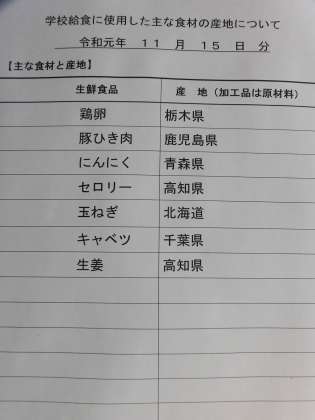 学校給食に使用した主な食材の産地について
令和元年 11 月 15 日 分
【主な食材と産地】
生鮮食品 産 地（加工品は原材料）
鶏卵 栃木県
豚ひき肉 鹿児島県
にんにく 青森県
セロリー 高知県
玉ねぎ 北海道
キャベツ 千葉県
生姜 高知県